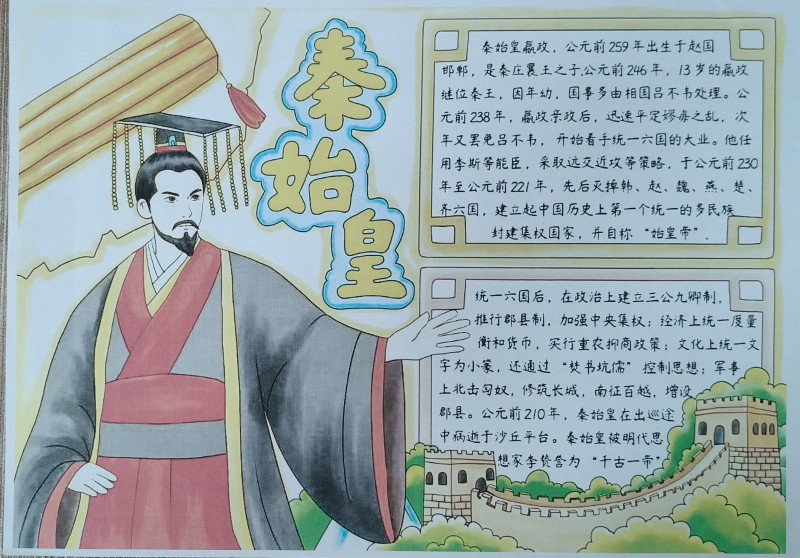 秦始皇
秦始皇嬴政，公元前259年出生于赵国
邯郸，是秦庄襄王之子.公元前246年，13岁的嬴政
继位秦王，因年幼，国事多由相国吕不韦处理。公
元前238年，嬴政亲政后，迅速平定嫪毐之乱，次
年又罢免吕不韦，开始着手统一六国的大业。他任
用李斯等能臣，采取远交近攻等策略，于公元前230
年至公元前221年，先后灭掉韩、赵、魏、燕、楚、
齐六国，建立起中国历史上第一个统一的多民族
封建集权国家，并自称“始皇帝”.
统一六国后，在政治上建立三公九卿制，
推行郡县制，加强中央集权；经济上统一度量
衡和货币，实行重农抑商政策；文化上统一文
字为小篆，还通过“焚书坑儒”控制思想；军事
上北击匈奴，修筑长城，南征百越，增设
郡县。公元前210年，秦始皇在出巡途
中病逝于沙丘平台。秦始皇被明代思
想家李贽誉为“千古一帝”